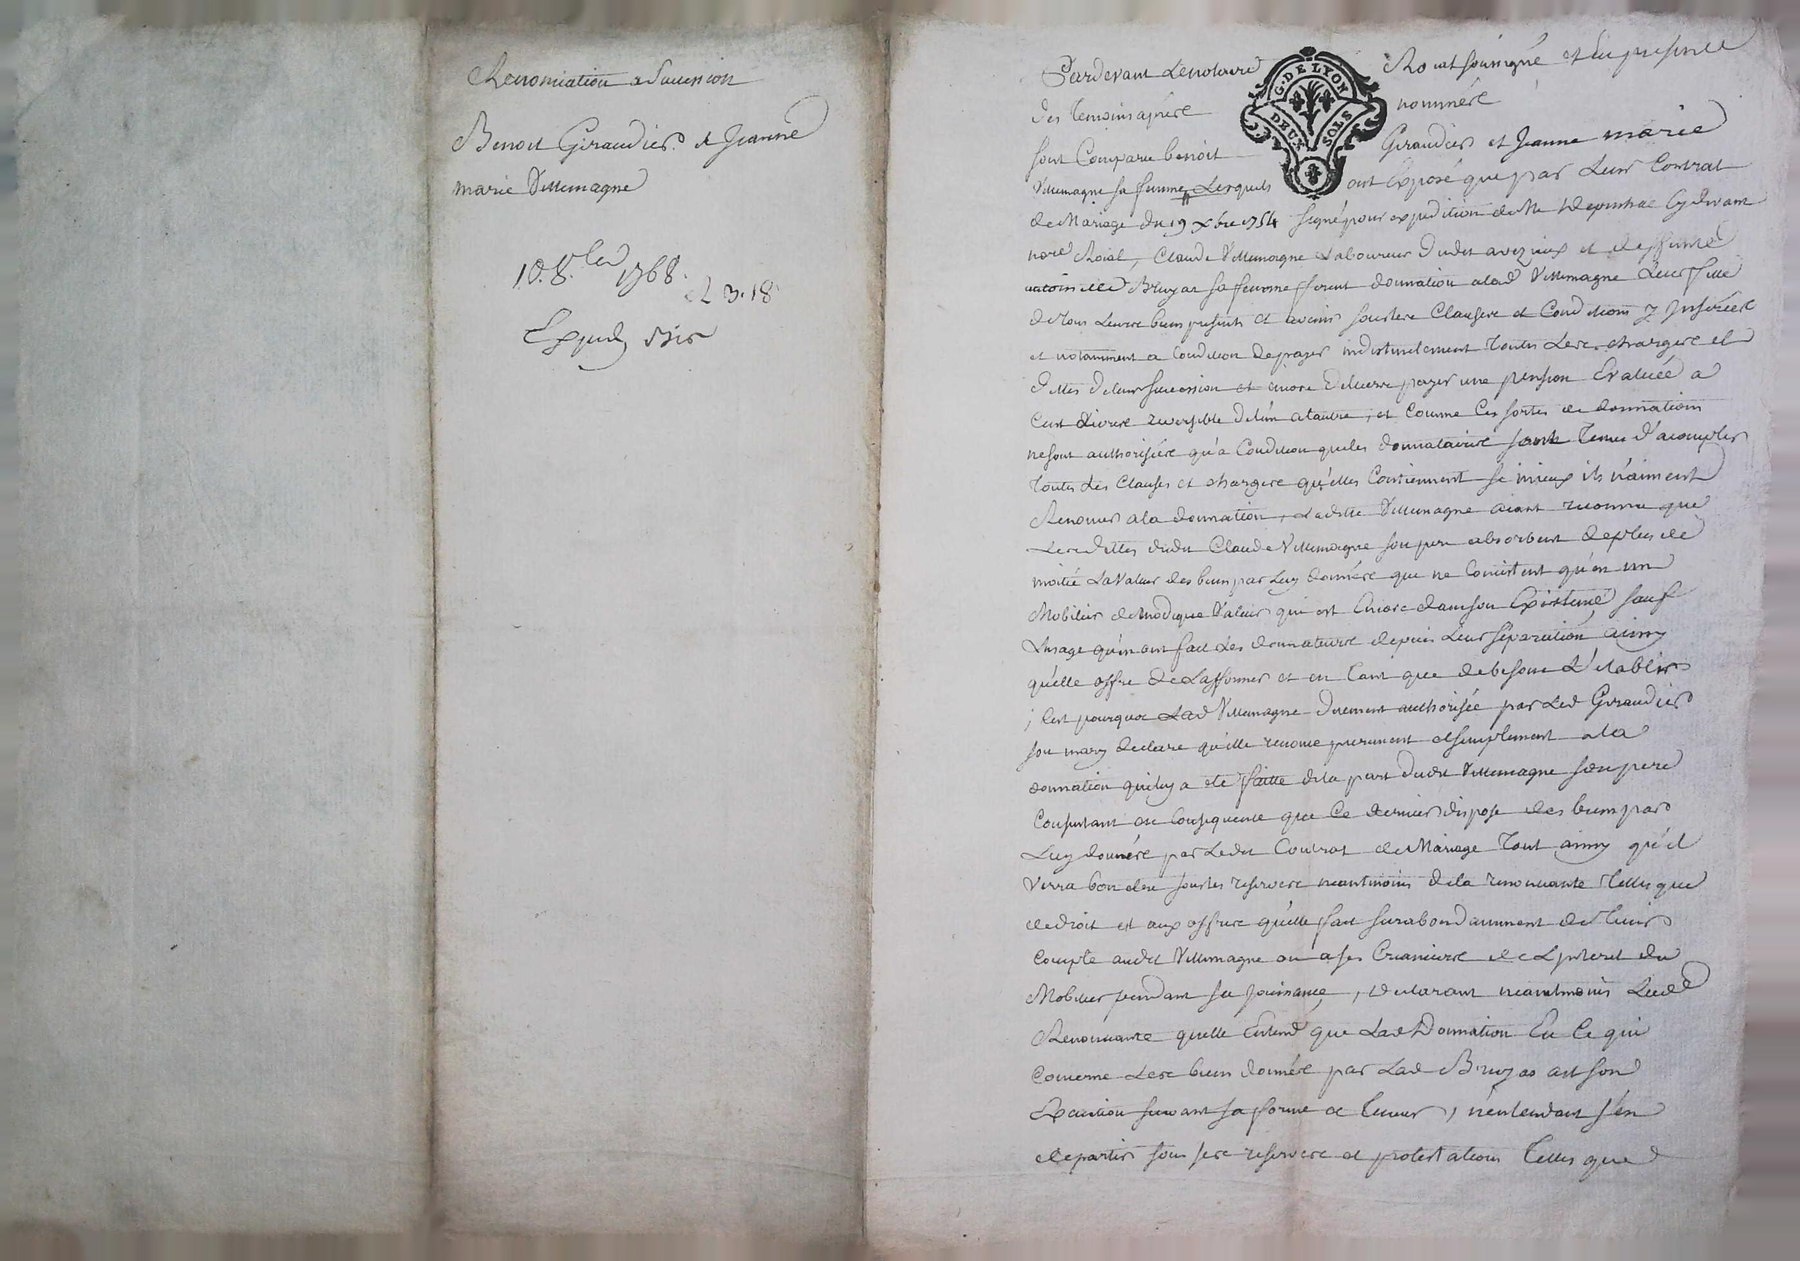 Renonciation a Sucession
Benoit Giraudier et Jeanne
marie Villemagne
10. 8.bre 1768.
et 3. 18
Expéd. bis
Pardevant Le notaire Roial soussigné et En presence
G. DE LYON
DEUX SOLS
des Temoins aprés nommés
sont Comparu benoit Giraudier et Jeanne marie
Villemagne sa femme, Lesquels ont Exposé que par Leur Contrat
de Mariage du 19 Xbre 1754 signé pour expedition de Me Cydevant
nore Roial, Claude Villemagne Laboureur dudit avezieux et deffunte
antoinette Bruyas sa femme firent donnation alad Villemagne Leur fille
de Tous Leurs biens presents et avenir sous Les Clauses et Conditions y Inserées
et notamment a Condition de payer indistinctement Toutes Les charges et
dettes de leur sucession et encore de Leurs payer une pension Evaluée a
Cent Livres reversible de l'un a l'autre, et Comme Ces sortes de donnations
ne sont authorisées qu'a Condition que les donnataires sont Tenus d'acomplir
Toutes Les Clauses et charges qu'elles Contiennent si mieux ils n'aiment
Renoncer a la donnation, Ladite Villemagne aiant reconnu que
Les dettes dudit Claude Villemagne son pere absorbent de plus de
moitié La Valeur des biens par Luy donnés que ne Consistent qu'en un
Mobilier de Modique Valeur qui est Encore dans son Existence sauf
L'usage qu'en ont fait Les donnateurs depuis Leur separation ainsy
qu'elle offre de L'affirmer et en Tant que de besoin L'etablir
; C'est pourquoi Lad Villemagne duement authorisée par Led Giraudier
son mary declare qu'elle renonce purement et simplement a la
donnation qui luy a eté faitte de la part dudit Villemagne son pere
Consentant en Consequence que Ce dernier dispose des biens par
Luy donnés par Ledit Contrat de Mariage Tout ainsy qu'il
Verra bon etre sous les reserves neantmoins de la renonciante Telles que
de droit et aux offres qu'elle fait surabondamment de Tenir
Compte audit Villemagne ou a ses Creanciers de L'interet du
Mobilier pendant sa jouissance, declarant neantmoins Lad
Renonciante qu'elle Entend que Lad Donnation En Ce qui
Concerne Les biens donnés par Lad Bruyas ait son
Execution suivant sa forme et Teneur, n'entendant s'en
departir sous ses reserves et protestations Telles que